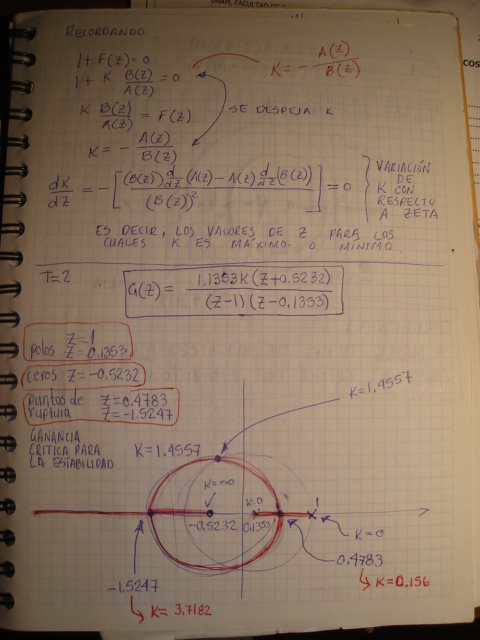 UNAM, FACULTAD DE
RECORDANDO
1 + F(z) = 0
1 + K B(z)/A(z) = 0
K = - A(z)/B(z)
K B(z)/A(z) = F(z)
SE DESPEJA K
K = - A(z)/B(z)
dK/dz = - [ (B(z)) d/dz (A(z)) - A(z) d/dz (B(z)) / (B(z))² ] = 0
VARIACIÓN
DE
K CON
RESPECTO
A ZETA
ES DECIR, LOS VALORES DE Z PARA LOS
CUALES K ES MÁXIMO O MÍNIMO
T=2
G(z) = 1.1353K(z+0.5232) / (z-1)(z-0.1353)
polos z=1
z=0.1353
ceros z=-0.5232
puntos de ruptura z=0.4783
z=-1.5247
GANANCIA
CRITICA PARA
LA ESTABILIDAD
K=1.4557
K=1.4557
K=∞
K=0
1
-0.5232
0.1353
K=0
0.4783
K=0.156
-1.5247
K= 3.7182